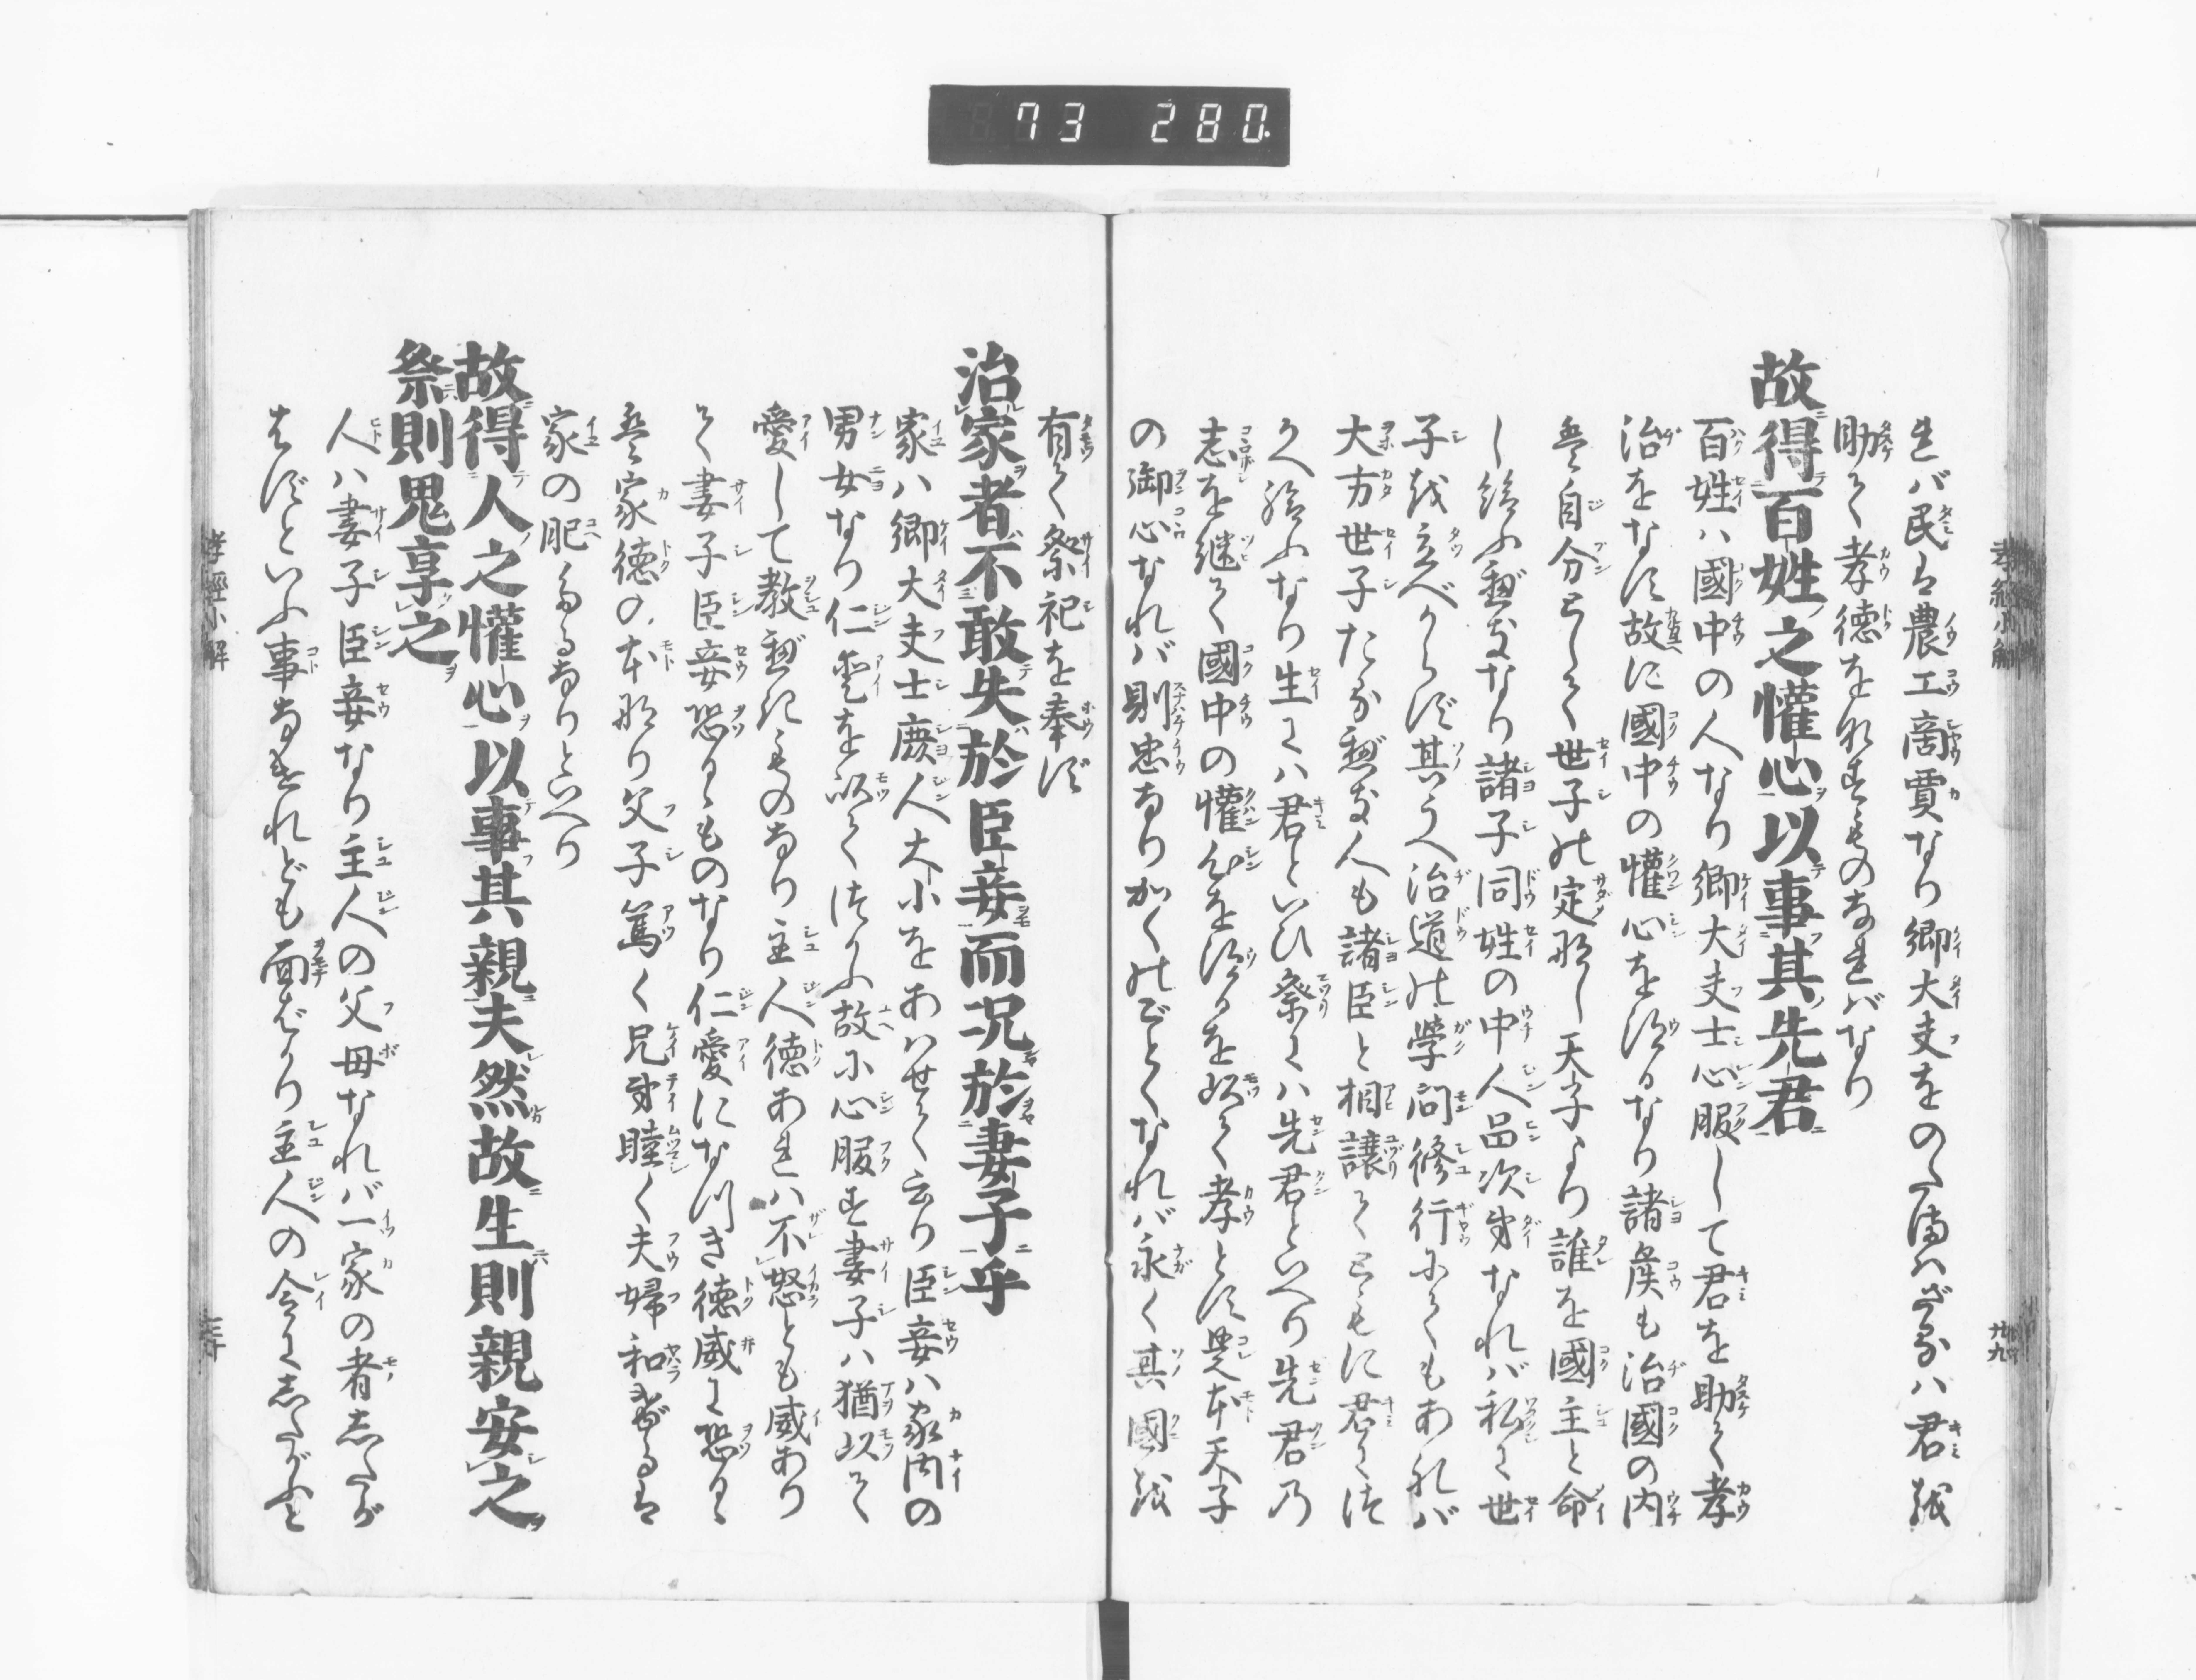 73 280.
れバ民は農工商賈なり卿大夫をのたまハざるハ君を
助て孝徳をなすものなれバなり
故得百姓之懽心以事其先君
百姓ハ國中の人なり卿大夫士心服して君を助て孝
治をなす故に國中の懽心を得るなり諸侯も治國の内
自分として世子の定なし天子より誰を國主と命
し給ふ義なり諸子同姓の中人品次第なれバ私に世
子を立べからず其うへ治道の學問修行にてもあれバ
大方世子たる人も諸臣と相譲てともに君につ
かへ給ふなり生にハ君といひ祭にハ先君といへり先君乃
志を継て國中の懽心を得るを以て孝とす是本天子
の御心なれバ則忠なり如くのごとくなれバ永く其國を
有て祭祀を奉ず
治家者不敢失於臣妾而況於妻子乎
家ハ卿大夫士庶人大小をあハせて云り臣妾ハ家内の
男女なり仁愛を以てつかふ故に心服す妻子ハ猶以て
愛して教ものなり主人徳あれハ不怒とも威あり
て妻子臣妾恐るゝものなり仁愛になつき徳威に恐るゝ
家徳の本なり父子篤く兄弟睦く夫婦和するは
家の肥たるなりといへり
故得人之懽心以事其親夫然故生則親安之
祭則鬼享之
人ハ妻子臣妾なり主人の父母なれバ一家の者したが
はずといふ事なけれども面ばかり主人の令にしたがふと
孝經小解
廿九
三十